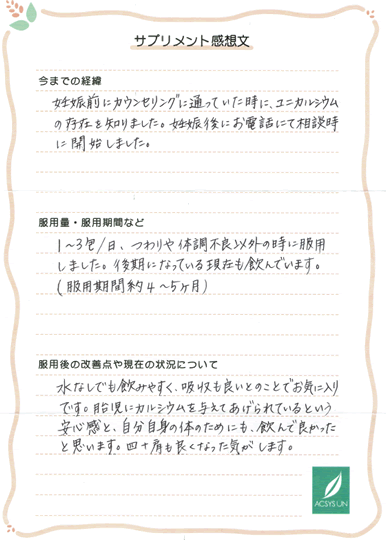 サプリメント感想文
今までの経緯
妊娠前にカウンセリングに通っていた時に、ユニカルシウム
の存在を知りました。妊娠後にお電話にて相談時
に開始しました。
服用量・服用期間など
1〜3包/日、つわりや体調不良以外の時に服用
しました。後期になっている現在も飲んでいます。
(服用期間約4〜5ヶ月)
服用後の改善点や現在の状況について
水なしでも飲みやすく、吸収も良いとのことでお気に入り
です。胎児にカルシウムを与えてあげられているという
安心感と、自分自身の体のためにも、飲んで良かった
と思います。四十肩も良くなった気がします。
ACSYSUN